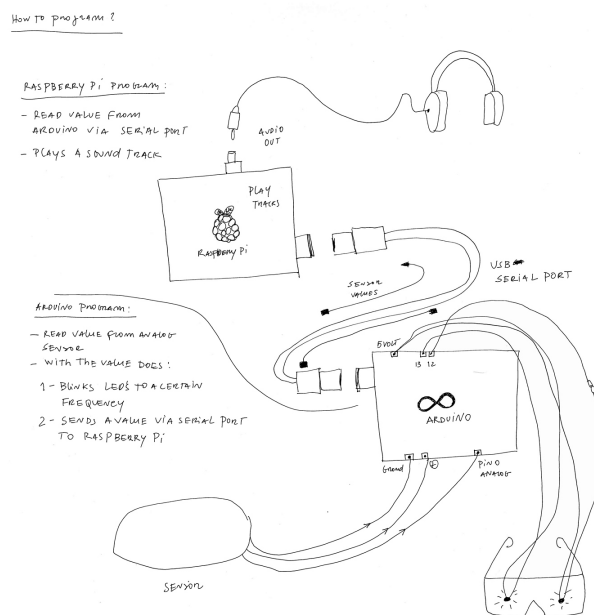 How to program?
RASPBERRY Pi PROGRAM:
- READ VALUE FROM
ARDUINO VIA SERIAL PORT
- PLAYS A SOUND TRACK
AUDIO
OUT
PLAY
TRACKS
RASPBERRY Pi
USB
SERIAL PORT
SENSOR
VALUES
ARDUINO PROGRAM:
- READ VALUE FROM ANALOG
SENSOR
- WITH THE VALUE DOES:
1 - BLINKS LEDS TO A CERTAIN
FREQUENCY
2 - SENDS A VALUE VIA SERIAL PORT
TO RASPBERRY Pi
5VOLT
13 12
ARDUINO
Ground
PIN 0
ANALOG
SENSOR